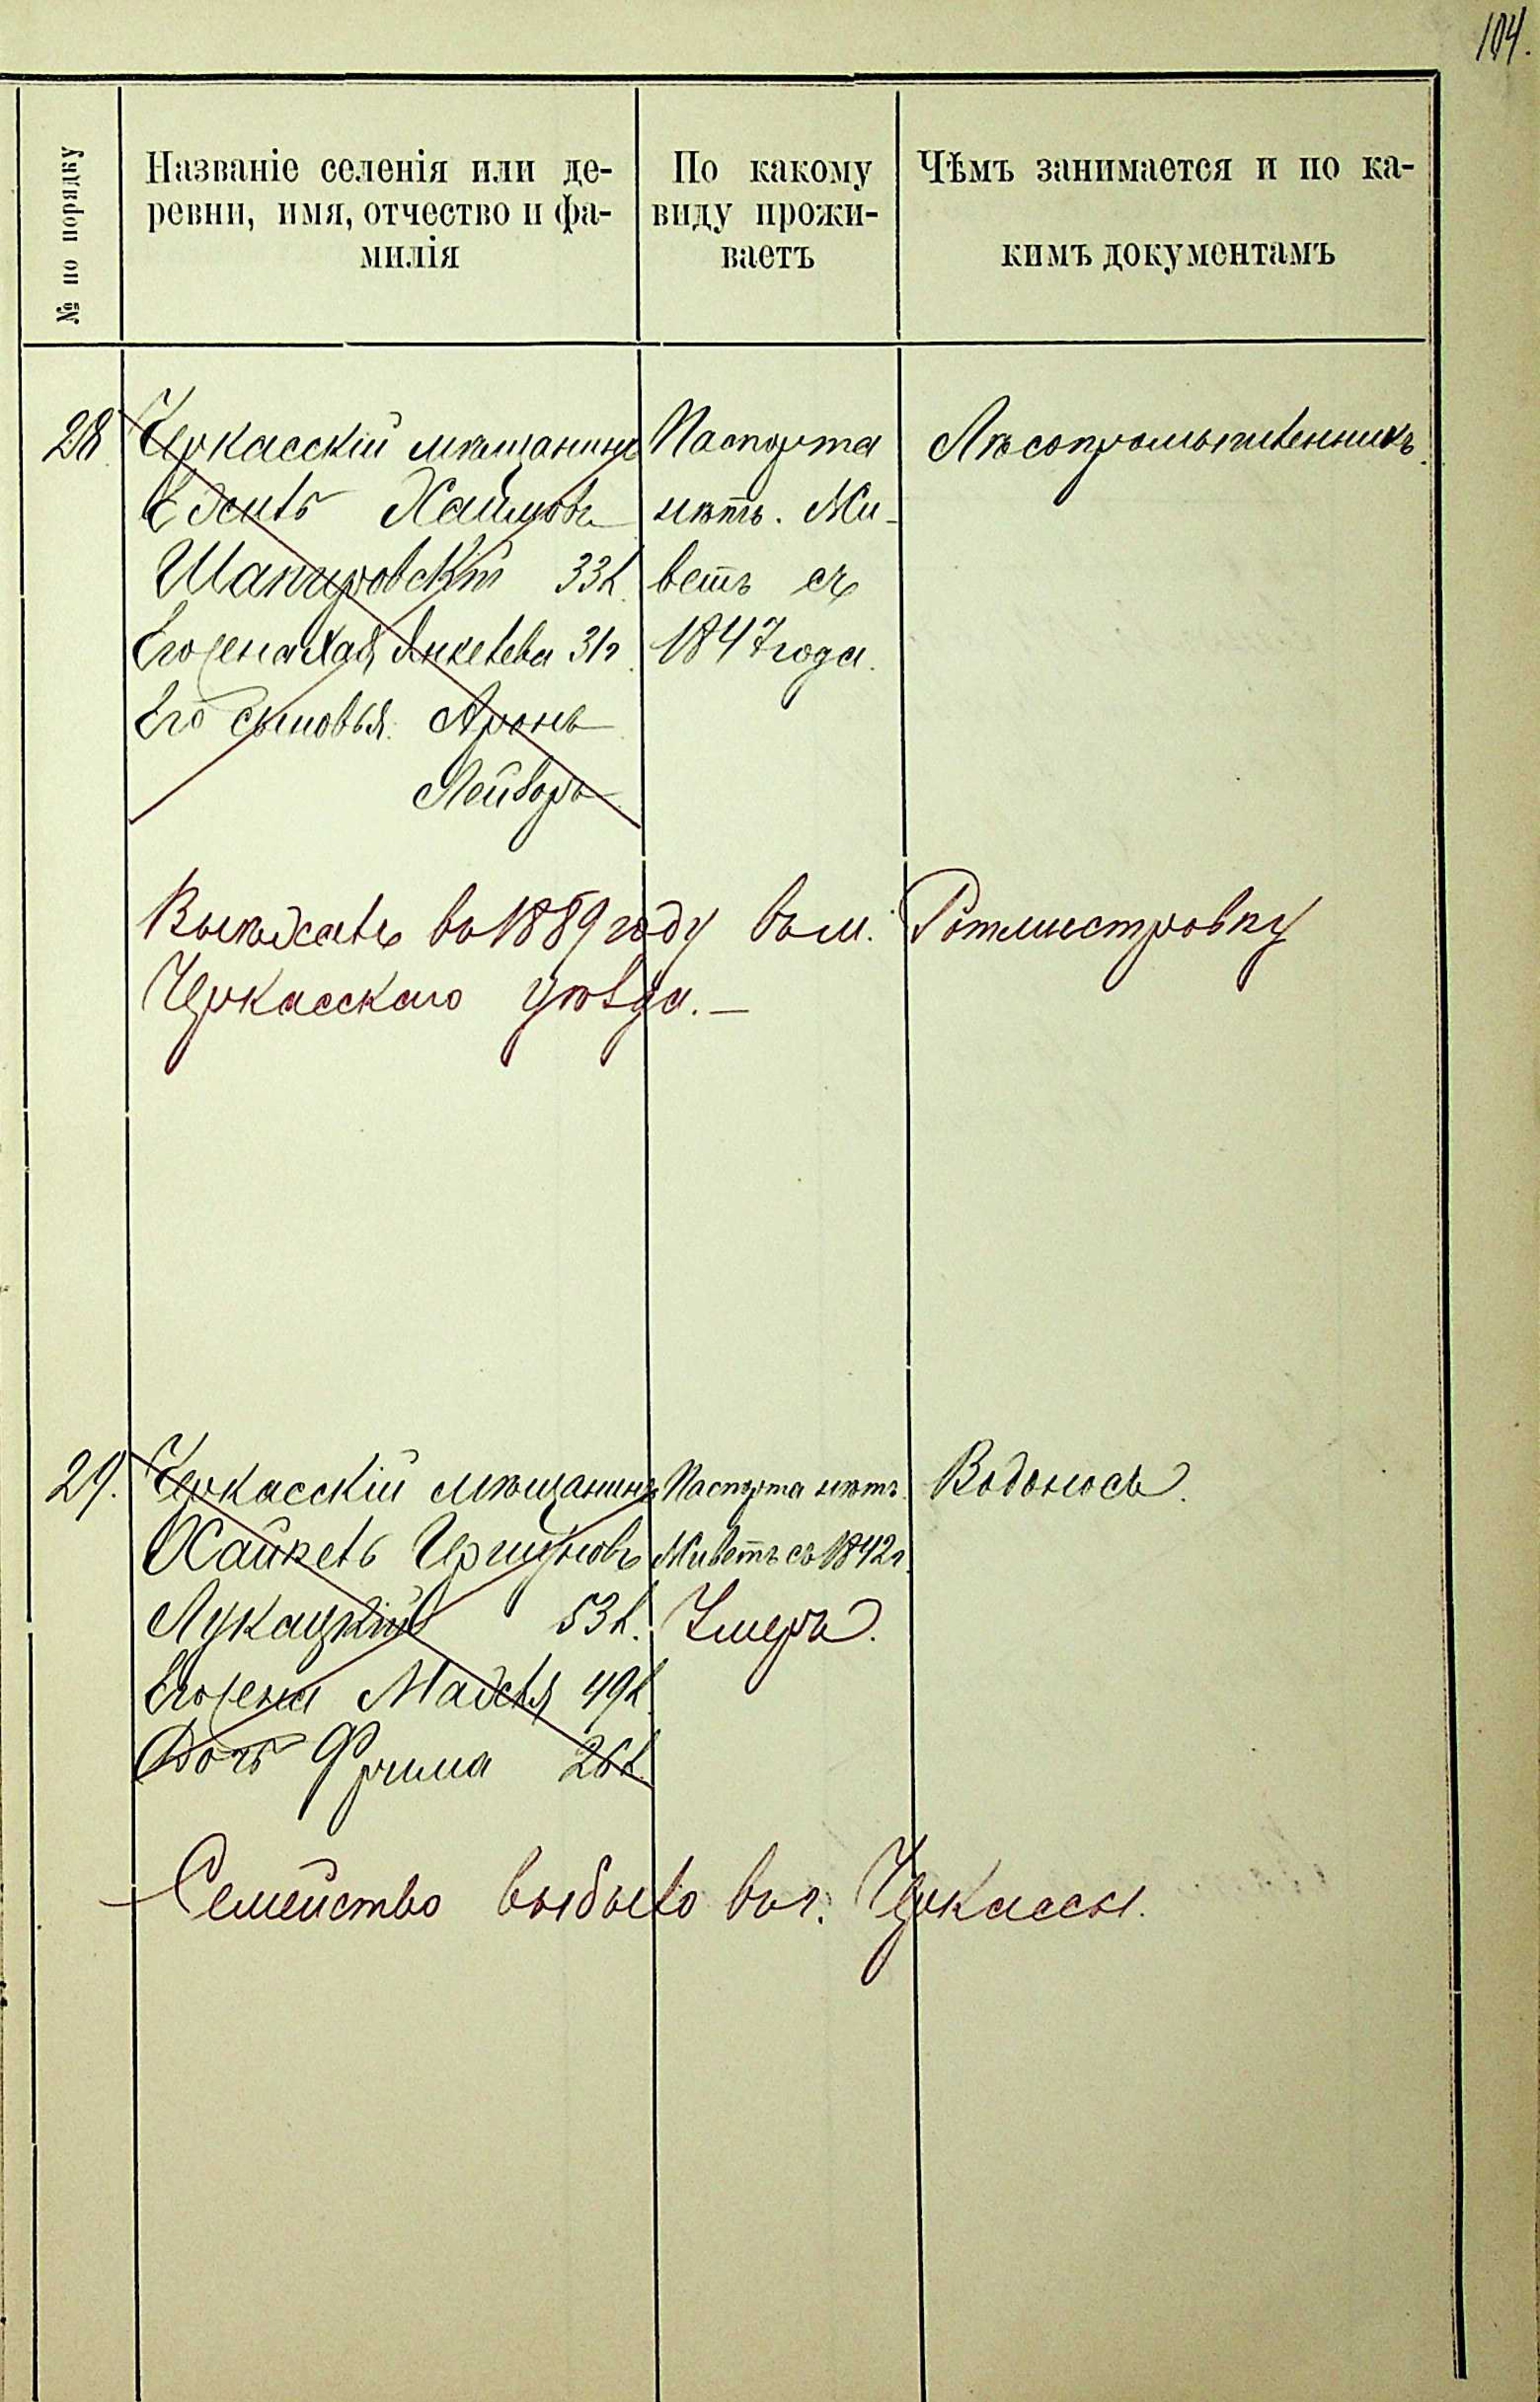 104.
№ по порядку
Названіе селенія или де-
ревни, имя, отчество и фа-
милія
По какому
виду прожи-
ваетъ
Чѣмъ занимается и по ка-
кимъ документамъ
28
Черкасскій мѣщанинъ
Хаимовъ
Шапировскій 33 л.
Его жена Хая Янкелева 31 г.
Его сыновья: Аронъ
Паспорта
нѣтъ. Жи-
ветъ съ
1847 года.
Лѣсопромышленникъ.
Выѣхалъ въ 1889 году въ м. Ротмистровку
Черкасскаго уѣзда. —
29.
Черкасскій мѣщанинъ
Хайкель Иршуновъ
Лукацкій 53 л.
Его жена 49 л.
Дочь Фрима 26 л.
Паспорта нѣтъ.
Живетъ съ 1842 г.
Умеръ.
Водоносъ.
Семейство выбыло въ г. Черкассы.